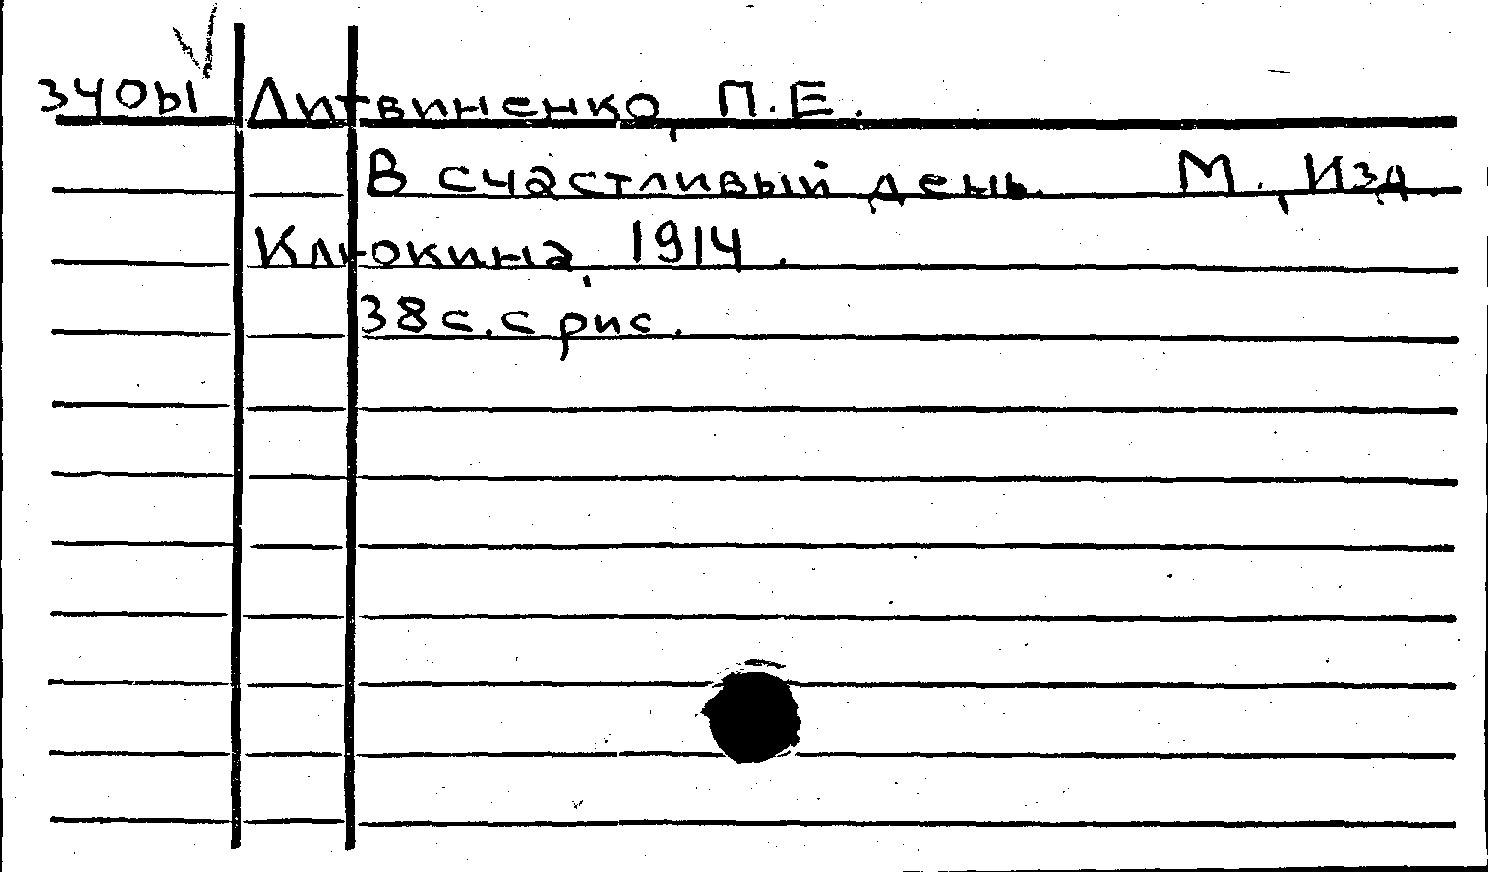 340ы Литвиненко, П.Е.
В счастливый день. М., Изд.
Клюкина, 1914.
38 с. с рис.